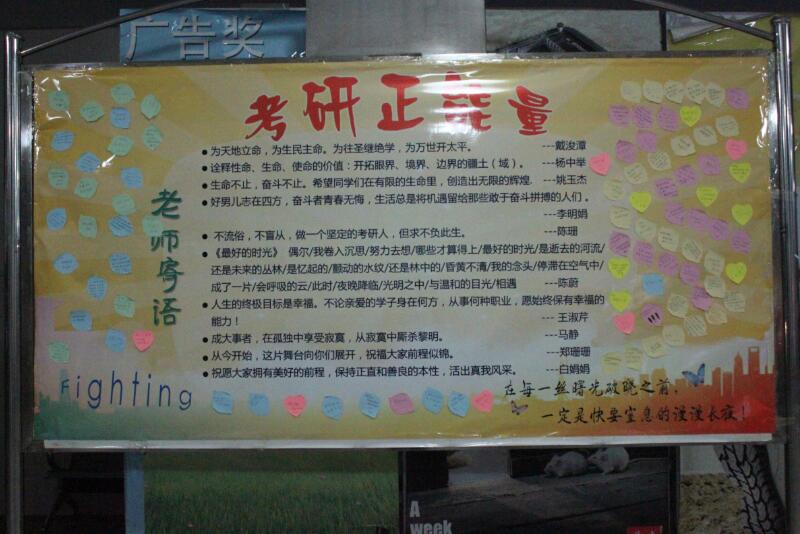 广告奖
考研正能量
老师寄语
• 为天地立命，为生民主命。为往圣继绝学，为万世开太平。 ---戴浚潭
• 诠释性命、生命、使命的价值：开拓眼界、境界、边界的疆土（域）。 ---杨中举
• 生命不止，奋斗不止。希望同学们在有限的生命里，创造出无限的辉煌. ---姚玉杰
• 好男儿志在四方，奋斗者青春无悔，生活总是将机遇留给那些敢于奋斗拼搏的人们 。
---李明娟
• 不流俗，不盲从，做一个坚定的考研人，但求不负此生。 ---陈珊
• 《最好的时光》 偶尔/我卷入沉思/努力去想/哪些才算得上/最好的时光/是逝去的河流/
还是未来的丛林/是忆起的/颤动的水纹/还是林中的/昏黄不清/我的念头/停滞在空气中/
成了一片/会呼吸的云/此时/夜晚降临/光明之中/与温和的目光/相遇 ---陈蔚
• 人生的终极目标是幸福。不论亲爱的学子身在何方，从事何种职业，愿始终保有幸福的
能力！ ---王淑芹
• 成大事者，在孤独中享受寂寞，从寂寞中厮杀黎明。 ---马静
• 从今开始，这片舞台向你们展开，祝福大家前程似锦。 ---郑珊珊
• 祝愿大家拥有美好的前程，保持正直和善良的本性，活出真我风采。 ---白娟娟
Fighting
在每一丝曙光破晓之前，
一定是快要窒息的漫漫长夜！
A
week